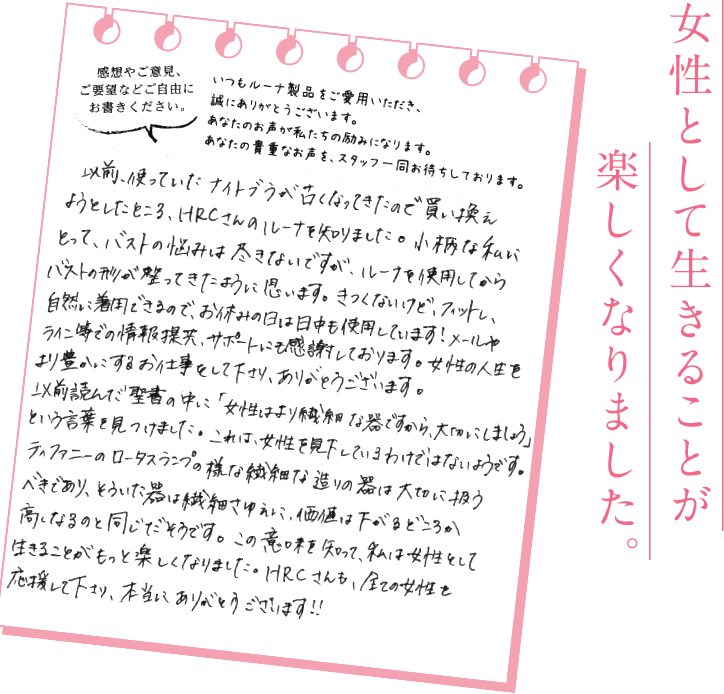 女性として生きることが
楽しくなりました。
感想やご意見、
ご要望などご自由に
お書きください。
いつもルーナ製品をご愛用いただき、
誠にありがとうございます。
あなたのお声が私たちの励みになります。
あなたの貴重なお声を、スタッフ一同お待ちしております。
以前、使っていたナイトブラが古くなってきたので買い換え
ようとしたところ、HRCさんのルーナを知りました。小柄な私に
とって、バストの悩みは尽きないですが、ルーナを使用してから
バストの形が整ってきたように思います。きつくないけど、フィットし、
自然に着用できるので、お休みの日は日中も使用しています!メールや
ライン等での情報提供、サポートにも感謝しております。女性の人生を
より豊かにするお仕事をして下さり、ありがとうございます。
以前読んだ聖書の中に「女性はより繊細な器ですから、大切にしましょう」
という言葉を見つけました。これは、女性を見下しているわけではないようです。
ティファニーのロータスランプの様な繊細な造りの器は大切に扱う
べきであり、そういた器は繊細さゆえに、価値は下がるどころか
高くなるのと同じだそうです。この意味を知って、私は女性として
生きることがもっと楽しくなりました。HRCさんも、全ての女性を
応援して下さり、本当にありがとうございます!!